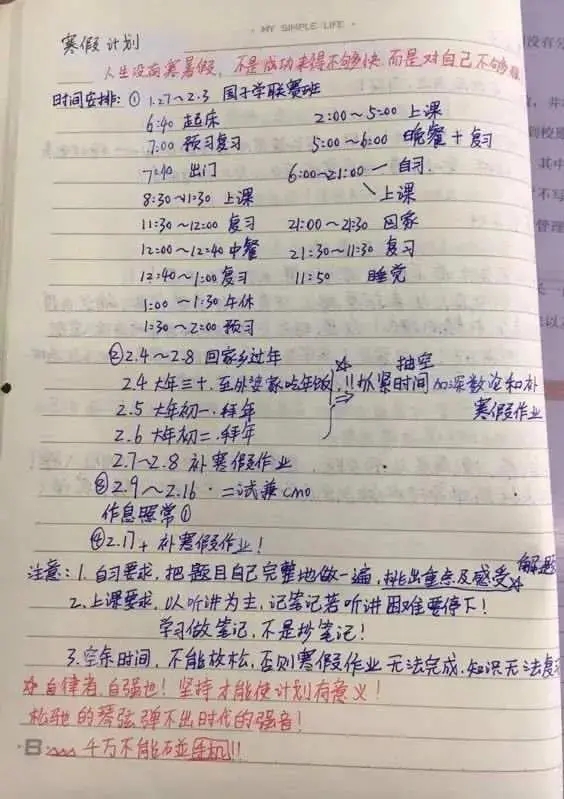 MY SIMPLE LIFE
寒假计划
人生没有寒暑假，不是成功来得不够快，而是对自己不够狠
时间安排：① 1.27~2.3 国子学联赛班
6:40 起床 2:00~5:00 上课
7:00 预习复习 5:00~6:00 晚餐+复习
7:40 出门 6:00~21:00 自习
8:30~11:30 上课 上课
11:30~12:00 复习 21:00~21:30 回家
12:00~12:40 中餐 21:30~11:30 复习
12:40~1:00 复习 11:50 睡觉
1:00~1:30 午休
1:30~2:00 预习
② 2.4~2.8 回家乡过年 抽空
2.4 大年三十，至外婆家吃年饭 !!抓紧时间加深数论和补
2.5 大年初一，拜年 寒假作业
2.6 大年初二，拜年
2.7~2.8 补寒假作业
③ 2.9~2.16 · 二试兼cmo
作息照常①
④ 2.17+ 补寒假作业！
注意：1. 自习要求，把题目自己完整地做一遍，挑出重点及感受 解题
2. 上课要求，以听讲为主，记笔记若听讲困难要停下！
学习做笔记，不是抄笔记！
3. 空余时间，不能放松，否则寒假作业无法完成，知识无法复
自律者，自强也！坚持才能使计划有意义！
松驰的琴弦弹不出时代的强音！
千万不能碰手机!!
没有分
并
到校
其中
不写
管理